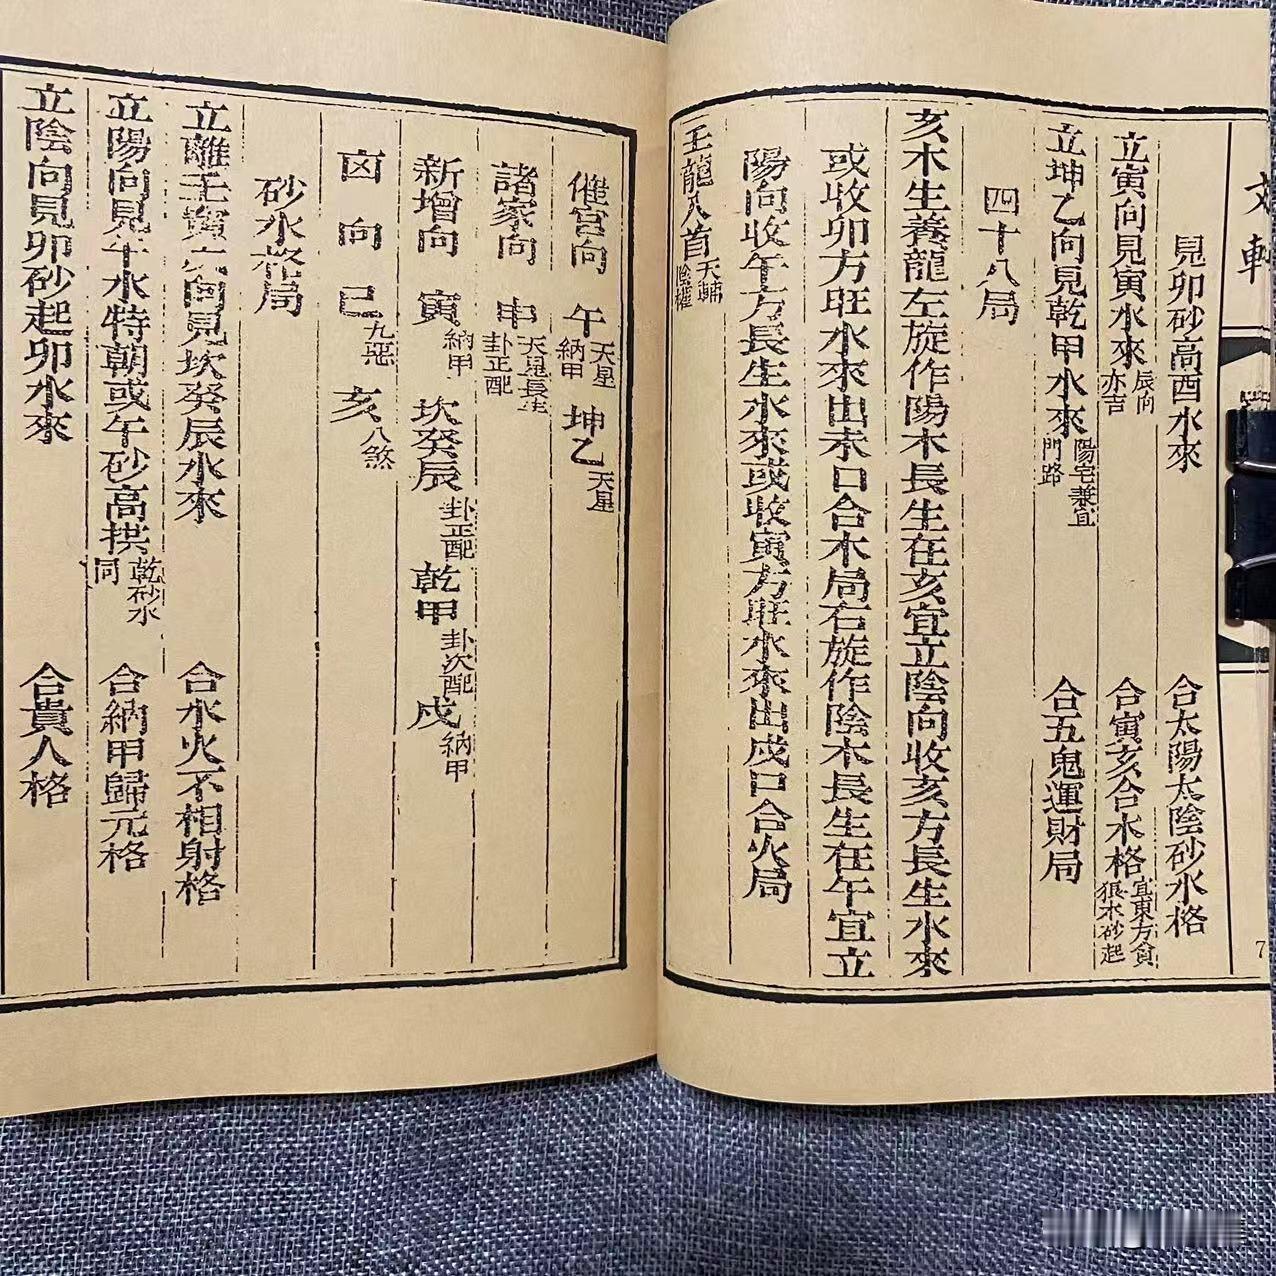 見卯砂高酉水來 合太陽太陰砂水格
立寅向見寅水來 辰向亦吉 合寅亥合木格 宜東方貪狼木砂起
立坤乙向見乾甲水來 陽宅兼宜門路 合五鬼運財局
四十八局
亥木生養龍左旋作陽木長生在亥宜立陰向收亥方長生水來
或收卯方旺水來出未口合木局右旋作陰木長生在午宜立
陽向收午方長生水來或收寅方旺水來出戌口合火局
壬龍八首 天輔陰權
催官向 午 天星納甲 坤乙 天星
諸家向 申 天星長生卦正配
新增向 寅 納甲 坎癸辰 卦正配 乾甲 卦次配 戌 納甲
凶向 巳 九惡 亥 八煞
砂水格局
立離壬寅 向見坎癸辰水來 合水火不相射格
立陽向見午水特朝或午砂高拱 乾砂水同 合納甲歸元格
立陰向見卯砂起卯水來 合貴人格
7